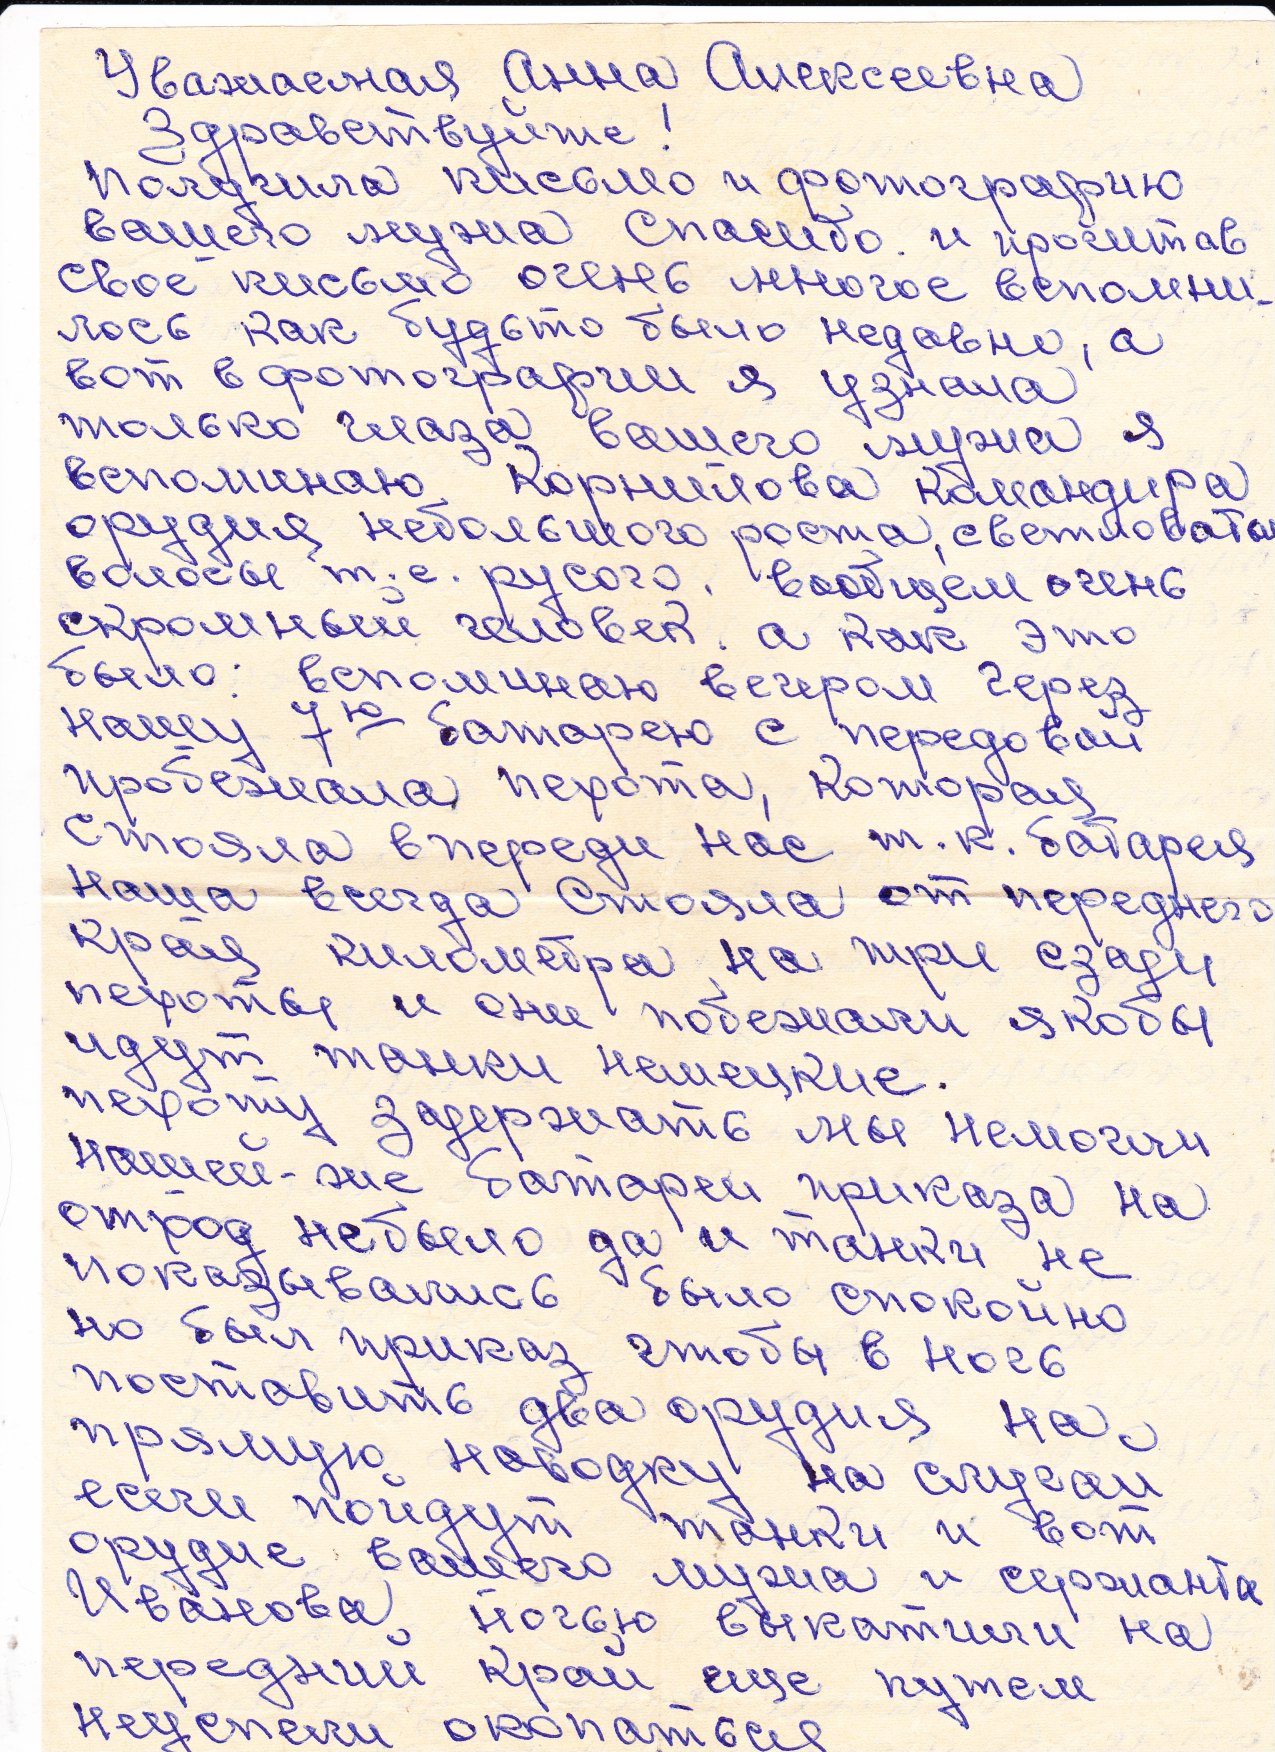 Уважаемая Анна Алексеевна
Здравствуйте!
Получила письмо и фотографию
вашего мужа Спасибо. и прочитав
своё письмо очень многое вспомни-
лось как будьто было недавно, а
вот в фотографии я узнала
только глаза вашего мужа я
вспоминаю Корнилова командира
орудия небольшого роста, светловатые
волосы т.е. русого. вообщем очень
скромный человек. а как это
было: вспоминаю вечером через
нашу 7ю батарею с передовой
пробежала пехота, которая
стояла впереди нас т.к. батарея
наша всегда стояла от переднего
края километра на три сзади
пехоты и они побежали якобы
идут танки немецкие.
пехоту задержать мы немогли
нашей-же батареи приказа на
отход небыло да и танки не
показывались было спокойно
но был приказ чтобы в ночь
поставить два орудия на
прямую наводку на случай
если пойдут танки и вот
орудие вашего мужа и сержанта
Иванова ночью выкатили на
передний край еще путем
неуспели окопаться